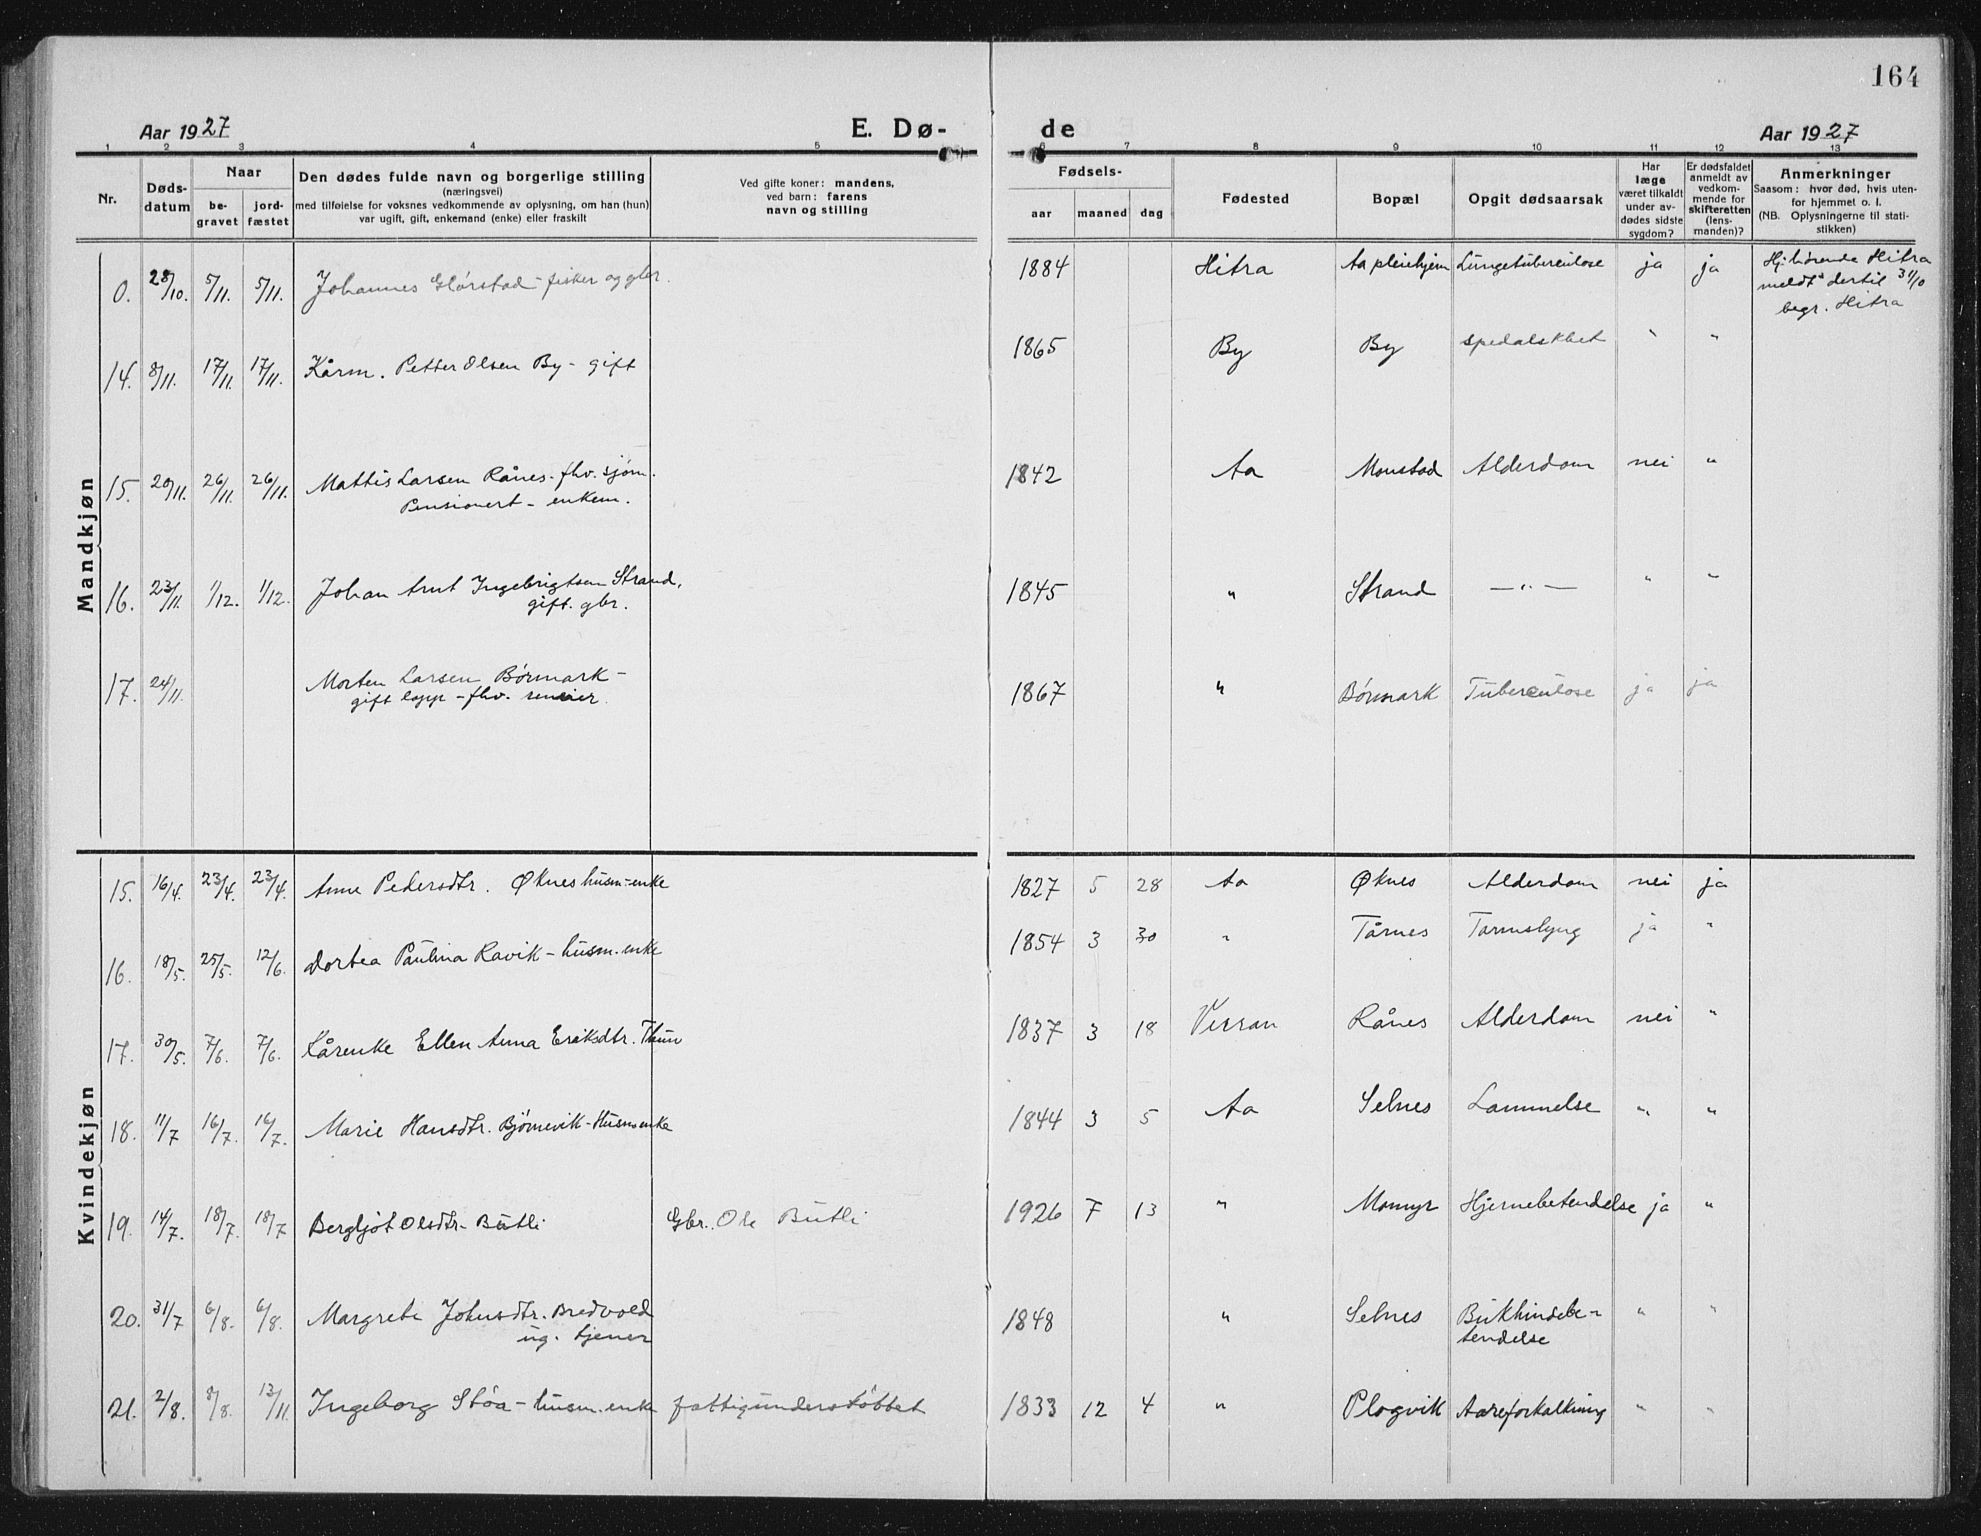 164
Aar 1927 E. Dø- de Aar 1927
1 2 3 4 5 6 7 8 9 10 11 12 13
Nr. Døds-datum Naar be-gravet jord-fæstet Den dødes fulde navn og borgerlige stilling (næringsvei) med tilføielse for voksnes vedkommende av oplysning, om han (hun) var ugift, gift, enkemand (enke) eller fraskilt Ved gifte koner: mandens, ved barn: farens navn og stilling Fødsels- aar maaned dag Fødested Bopæl Opgit dødsaarsak Har læge været tilkaldt under av-dødes sidste sygdom? Er dødsfaldet anmeldt av vedkom-mende for skifteretten (lens-manden)? Anmerkninger Saasom: hvor død, hvis uten-for hjemmet o. l. (NB. Oplysningerne til stati-stikken)
Mandkjøn
0. 28/10. 5/11. 5/11. Johannes Glørstad - fisker og gbr. 1884 Hitra Aa pleiehjem Lungetuberculose ja ja Hj.hørende Hitra
meldt dertil 31/10
begr. Hitra
14. 8/11. 17/11. 17/11. Kårm. Petter Olsen By - gift 1865 By By spedalskhet " "
15. 20/11. 26/11. 26/11. Mattis Larsen Rånes - fhv. sjøm. 1842 Aa Monstad Alderdom nei "
Pensionert - enkem.
16. 23/11. 1/12. 1/12. Johan Arnt Ingebrigtsen Strand. 1845 " Strand —"— " "
gift. gbr.
17. 24/11. Morten Larsen Børmark - 1867 " Børmark Tuberculose ja ja
gift lapp - fhv.
Kvindekjøn
15. 16/4. 23/4. 23/4. Anne Pedersdtr. Øknes husm-enke 1827 5 28 Aa Øknes Alderdom nei ja
16. 18/5. 25/5. 12/6. Dortea Paulina Ravik - husm. enke 1854 3 30 " Tårnes Tarmslyng ja "
17. 30/5. 7/6. 7/6. Kårenke Ellen Anna Eriksdtr. Thun 1837 3 18 Verran Rånes Alderdom nei "
18. 11/7 16/7. 16/7. Marie Hansdtr. Bjørnevik - Husmenke 1844 3 5 Aa Selnes Lammelse " "
19. 14/7. 18/7. 18/7 Bergljot Olsdtr. Butli Gbr. Ole Butli 1926 7 13 " Momyr Hjernebetendelse ja "
20. 31/7 6/8. 6/8. Margrete Johnsdtr. Bredvold 1848 " Selnes Bukhindebe-
ug. tjener tendelse " "
21. 2/8. 8/8. 13/11. Ingeborg Støa - husm. enke fattigunderstøttet 1833 12 4 " Plogvik Aareforkalkning " "